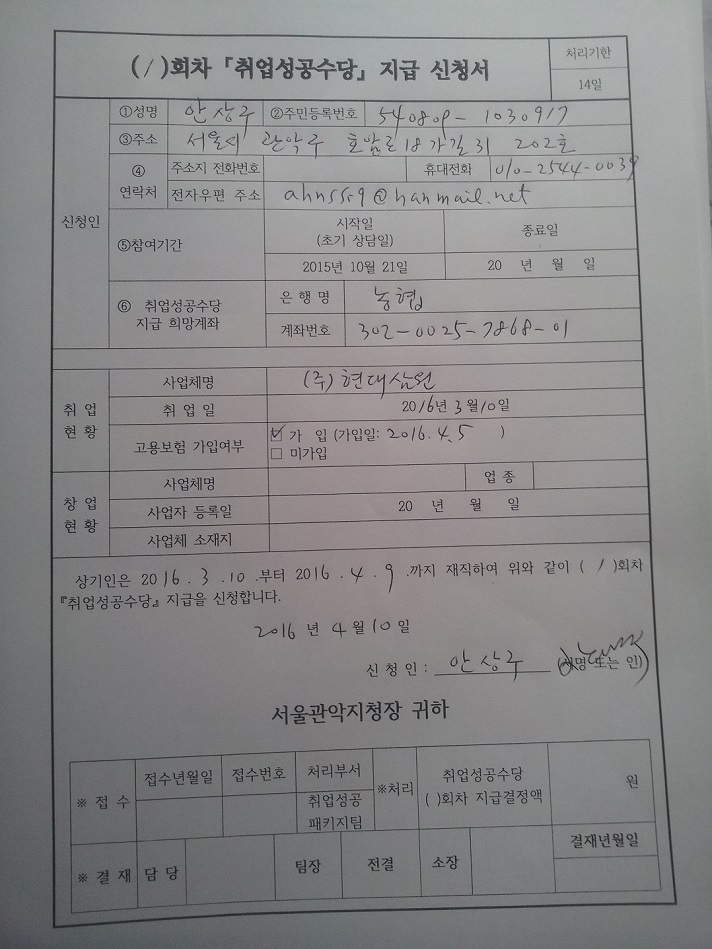 ( / )회차 「취업성공수당」 지급 신청서
처리기한
14일
신청인
①성명 안상구 ②주민등록번호 540809-1030917
③주소 서울시 관악구 호암로18가길 31 202호
④ 연락처
주소지 전화번호 휴대전화 010-2544-0039
전자우편 주소 ahnssg9@hanmail.net
⑤참여기간
시작일 (초기 상담일) 종료일
2015년 10월 21일 20 년 월 일
⑥ 취업성공수당 지급 희망계좌
은 행 명 농협
계좌번호 302-0025-7868-01
취 업 현 황
사업체명 (주)현대삼원
취 업 일 2016년 3월10일
고용보험 가입여부 ☑ 가 입 (가입일: 2016.4.5 )
□ 미가입
창 업 현 황
사업체명 업 종
사업자 등록일 20 년 월 일
사업체 소재지
상기인은 2016 . 3 . 10 .부터 2016 . 4 . 9 .까지 재직하여 위와 같이 ( / )회차
『취업성공수당』 지급을 신청합니다.
2016 년 4월 10 일
신 청 인 : 안상구 (서명 또는 인)
서울관악지청장 귀하
※ 접 수 접수년월일 접수번호 처리부서 ※처리 취업성공수당 ( )회차 지급결정액 원
취업성공 패키지팀
※ 결 재 담 당 팀장 전결 소장 결재년월일